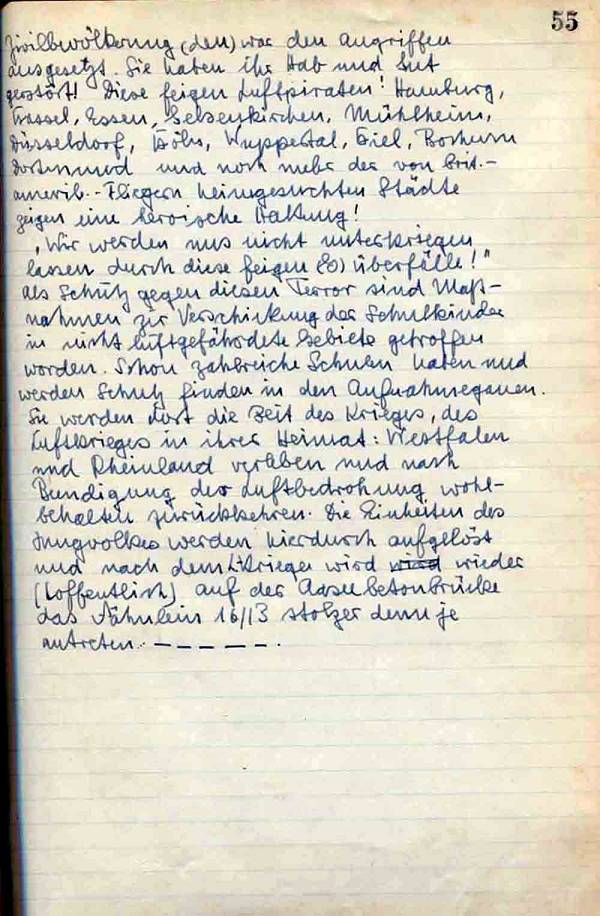 55
Zivilbevölkerung (den) war den Angriffen
ausgesetzt. Sie haben ihr Hab und Gut
zerstört! Diese feigen Luftpiraten! Hamburg,
Kassel, Essen, Gelsenkirchen, Mühlheim,
Düsseldorf, Köln, Wuppertal, Kiel, Bochum
Dortmund und noch mehr der von Brit.-
amerik.-Fliegern heimgesuchten Städte
zeigen eine heroische Haltung!
„Wir werden uns nicht unterkriegen
lassen durch diese feigen Überfälle!"
Als Schutz gegen diesen Terror sind Maß-
nahmen zur Verschickung der Schulkinder
in nicht luftgefährdete Gebiete getroffen
worden. Schon zahlreiche Schulen haben und
werden Schutz finden in den Aufnahmegauen.
Sie werden dort die Zeit des Krieges, des
Luftkrieges in ihrer Heimat: Westfalen
und Rheinland verleben und nach
Bendigung der Luftbedrohung wohl-
behalten zurückkehren. Die Einheiten des
Jungvolkes werden hierdurch aufgelöst
und nach dem Kriege wird wird wieder
(hoffentlich) auf der Aaseebetonbrücke
das Fähnlein 16/13 stolzer denn je
antreten. – – – – – – .